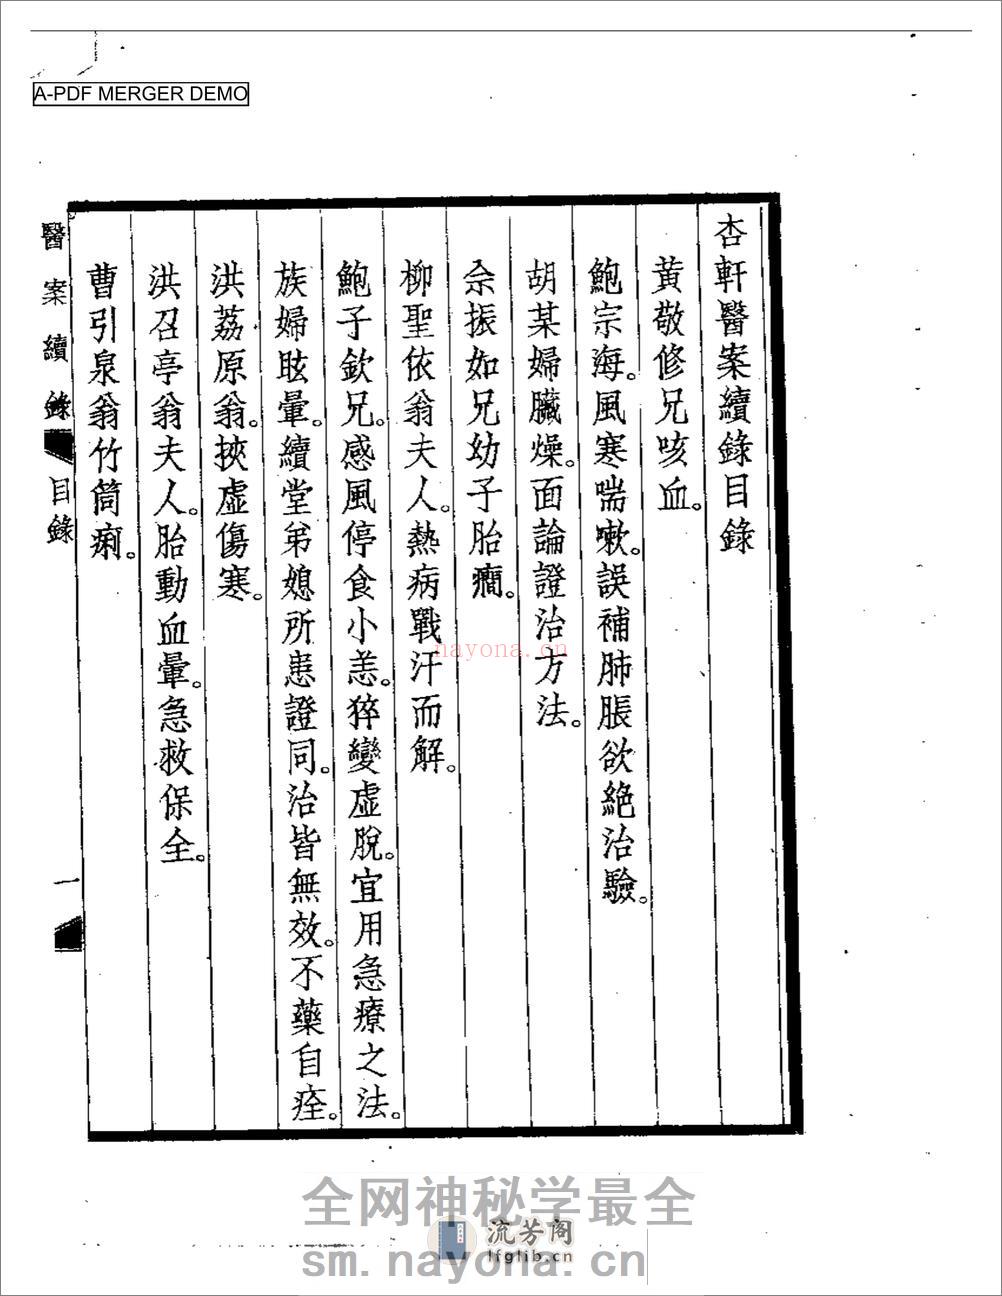 A-PDF MERGER DEMO
杏軒醫案續錄目錄
黃敬修兄咳血。
鮑宗海。風寒喘嗽。誤補肺脹欲絶治驗。
胡某婦臟燥。面論證治方法。
佘振如兄幼子胎癎。
柳聖依翁夫人。熱病戰汗而解。
鮑子欽兄。感風停食小恙。猝變虛脫。宜用急療之法。
族婦眩暈。續堂弟媳所患證同。治皆無效。不藥自痊。
洪荔原翁。挾虛傷寒。
洪召亭翁夫人。胎動血暈。急救保全。
曹引泉翁竹筒痢。
醫案續錄 目錄 一
nayona.cn
全网神秘学最全
流芳阁
lfglib.cn
sm.nayona.cn